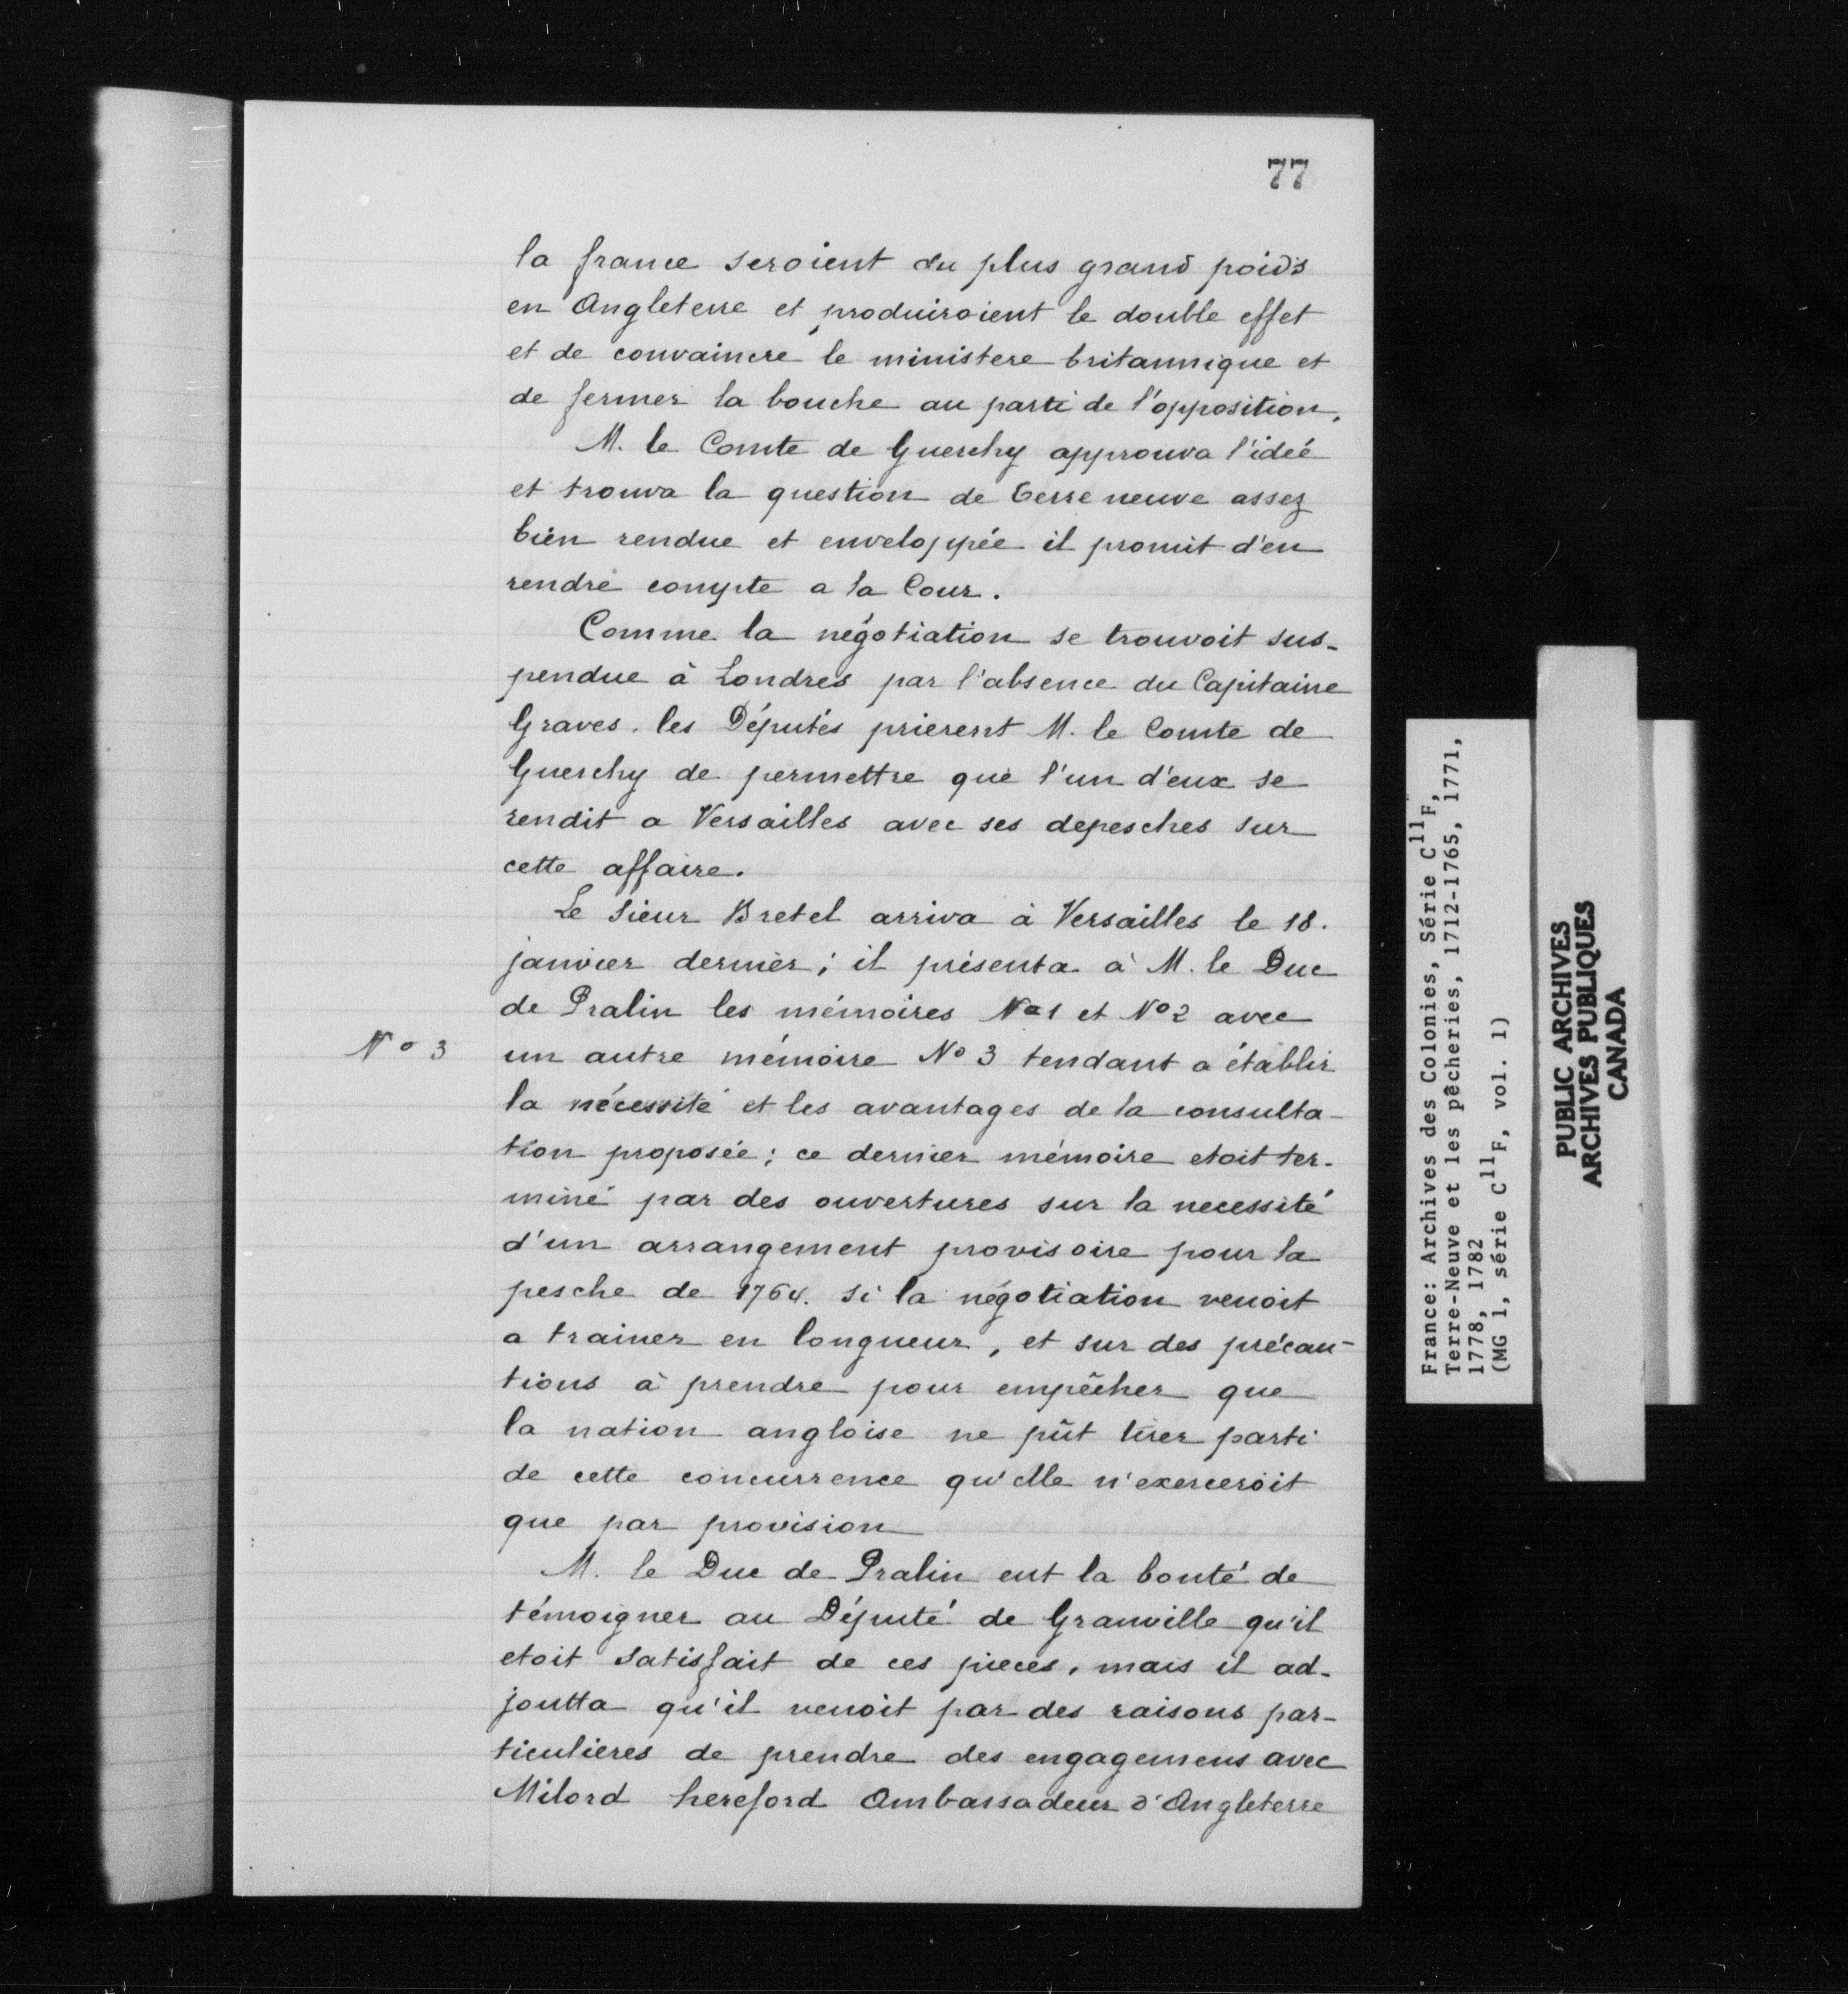 77
la france seroient du plus grand poids
en Angleterre et produiroient le double effet
et de convaincre le ministere britannique et
de fermer la bouche au parti de l'opposition.
M. le Comte de Guerchy approuva l'ideé
et trouva la question de terre neuve assez
bien rendue et enveloppée il promit d'en
rendre compte a la Cour.
Comme la négotiation se trouvoit sus-
pendue à Londres par l'absence du Capitaine
Graves. les Députés prierent M. le Comte de
Guerchy de permettre que l'un d'eux se
rendit a Versailles avec ses depesches sur
cette affaire.
Le Sieur Bretel arriva à Versailles le 18.
janvier dernier; il présenta à M. le Duc
de Pralin les mémoires No 1 et No 2 avec
No 3
un autre mémoire No 3 tendant a établir
la nécessité et les avantages de la consulta-
tion proposée; ce dernier mémoire etoit ter-
miné par des ouvertures sur la necessité
d'un arrangement provisoire pour la
pesche de 1764. si la négotiation venoit
a trainer en longueur, et sur des précau-
tions à prendre pour empêcher que
la nation angloise ne pût tirer parti
de cette concurrence qu'elle n'exerceroit
que par provision
M. le Duc de Pralin eut la bonté de
témoigner au Député de Granville qu'il
etoit satisfait de ces pieces, mais il ad-
joutta qu'il venoit par des raisons par-
ticulieres de prendre des engagemens avec
Milord hereford Ambassadeur d'Angleterre
France: Archives des Colonies, Série C11F,
Terre-Neuve et les pêcheries, 1712-1765, 1771,
1778, 1782
(MG 1, série C11F, vol. 1)
PUBLIC ARCHIVES
ARCHIVES PUBLIQUES
CANADA